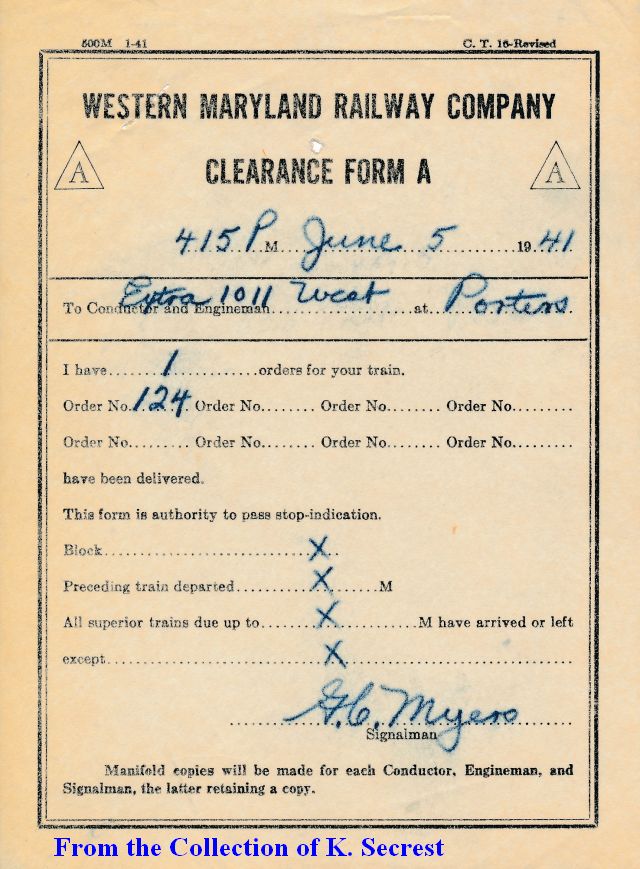 500M 1-41 C. T. 16-Revised
WESTERN MARYLAND RAILWAY COMPANY
A CLEARANCE FORM A A
415 P M June 5 1941
To Conductor and Engineman Extra 1011 West at Porters
I have 1 orders for your train.
Order No. 124 Order No. Order No. Order No.
Order No. Order No. Order No. Order No.
have been delivered.
This form is authority to pass stop-indication.
Block X
Preceding train departed X M
All superior trains due up to X M have arrived or left
except X
G.C. Myers
Signalman
Manifold copies will be made for each Conductor, Engineman, and
Signalman, the latter retaining a copy.
From the Collection of K. Secrest